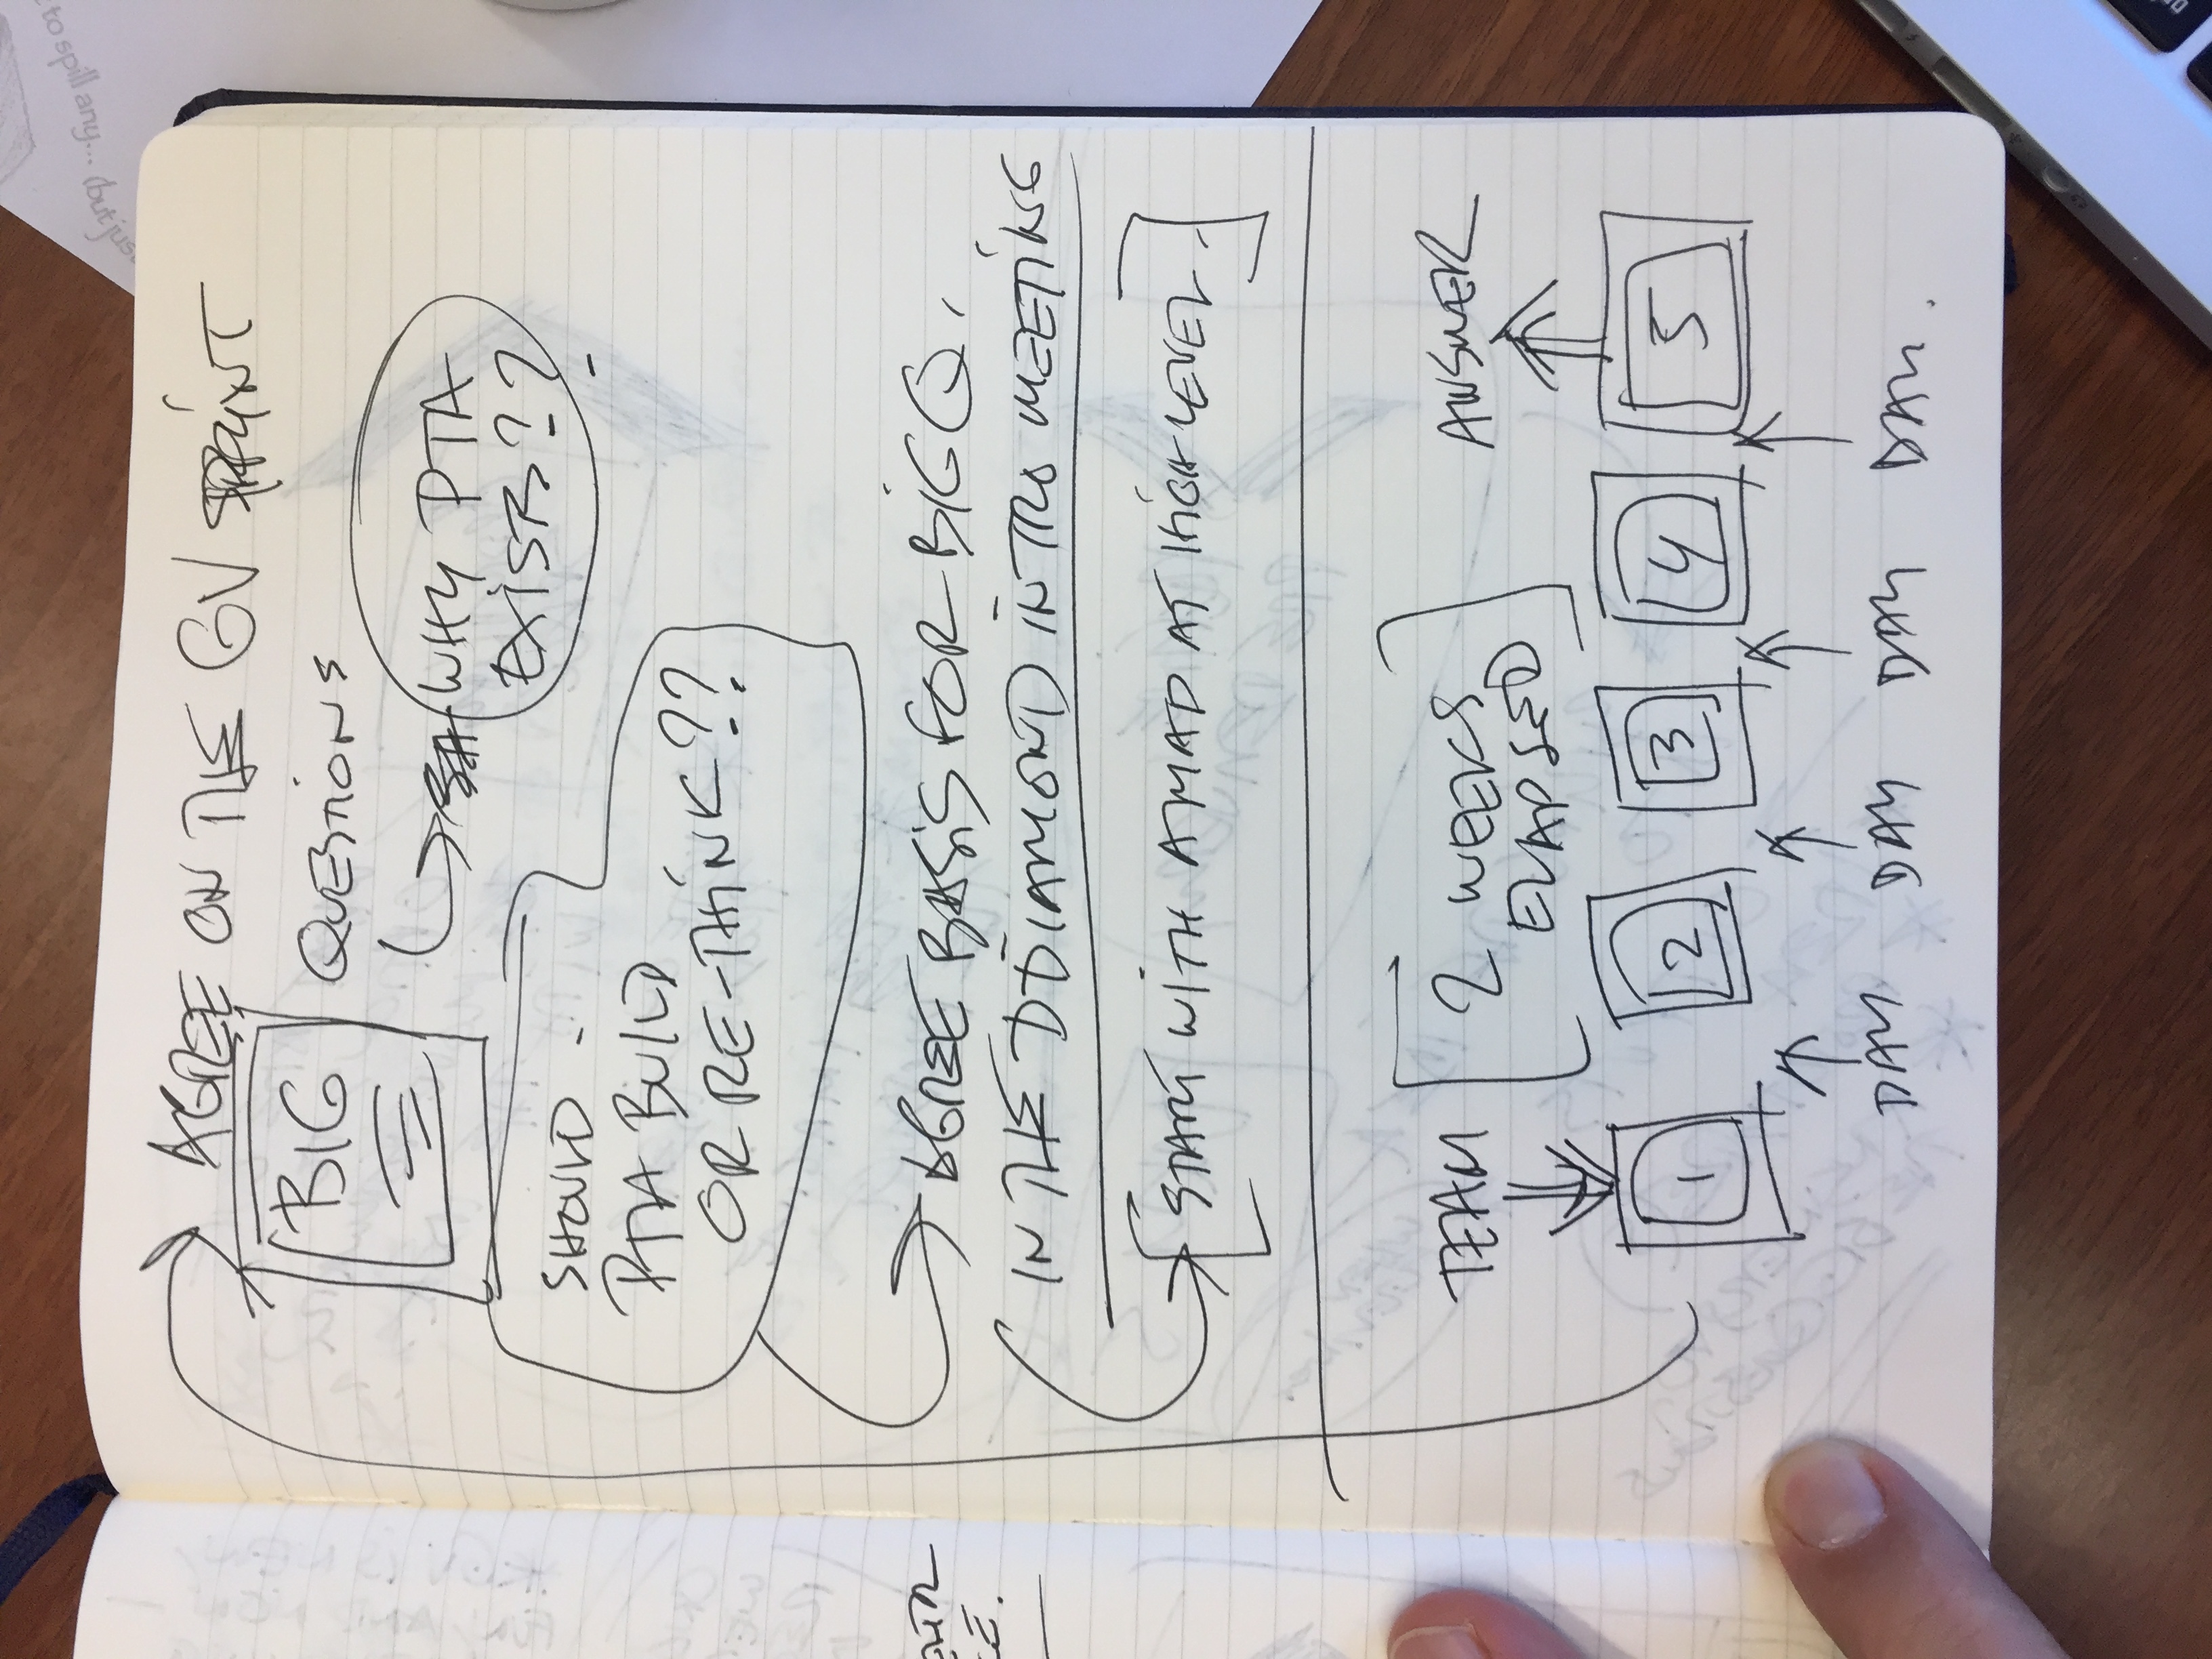 to spill any... (but jus
AGREE ON THE GV SPRINT
BIG
QUESTIONS
WHY PTA
EXISTS??
SHOULD
PTA BUILD
OR RE-THINK??
AGREE BASIS FOR BIG Q.
IN THE DDIAMOND INTRO MEETING
START WITH A MAD AT HIGH LEVEL.
TEAM
2 WEEKS
ELAPSED
ANSWER
1 2 3 4 5
DAY DAY DAY DAY.